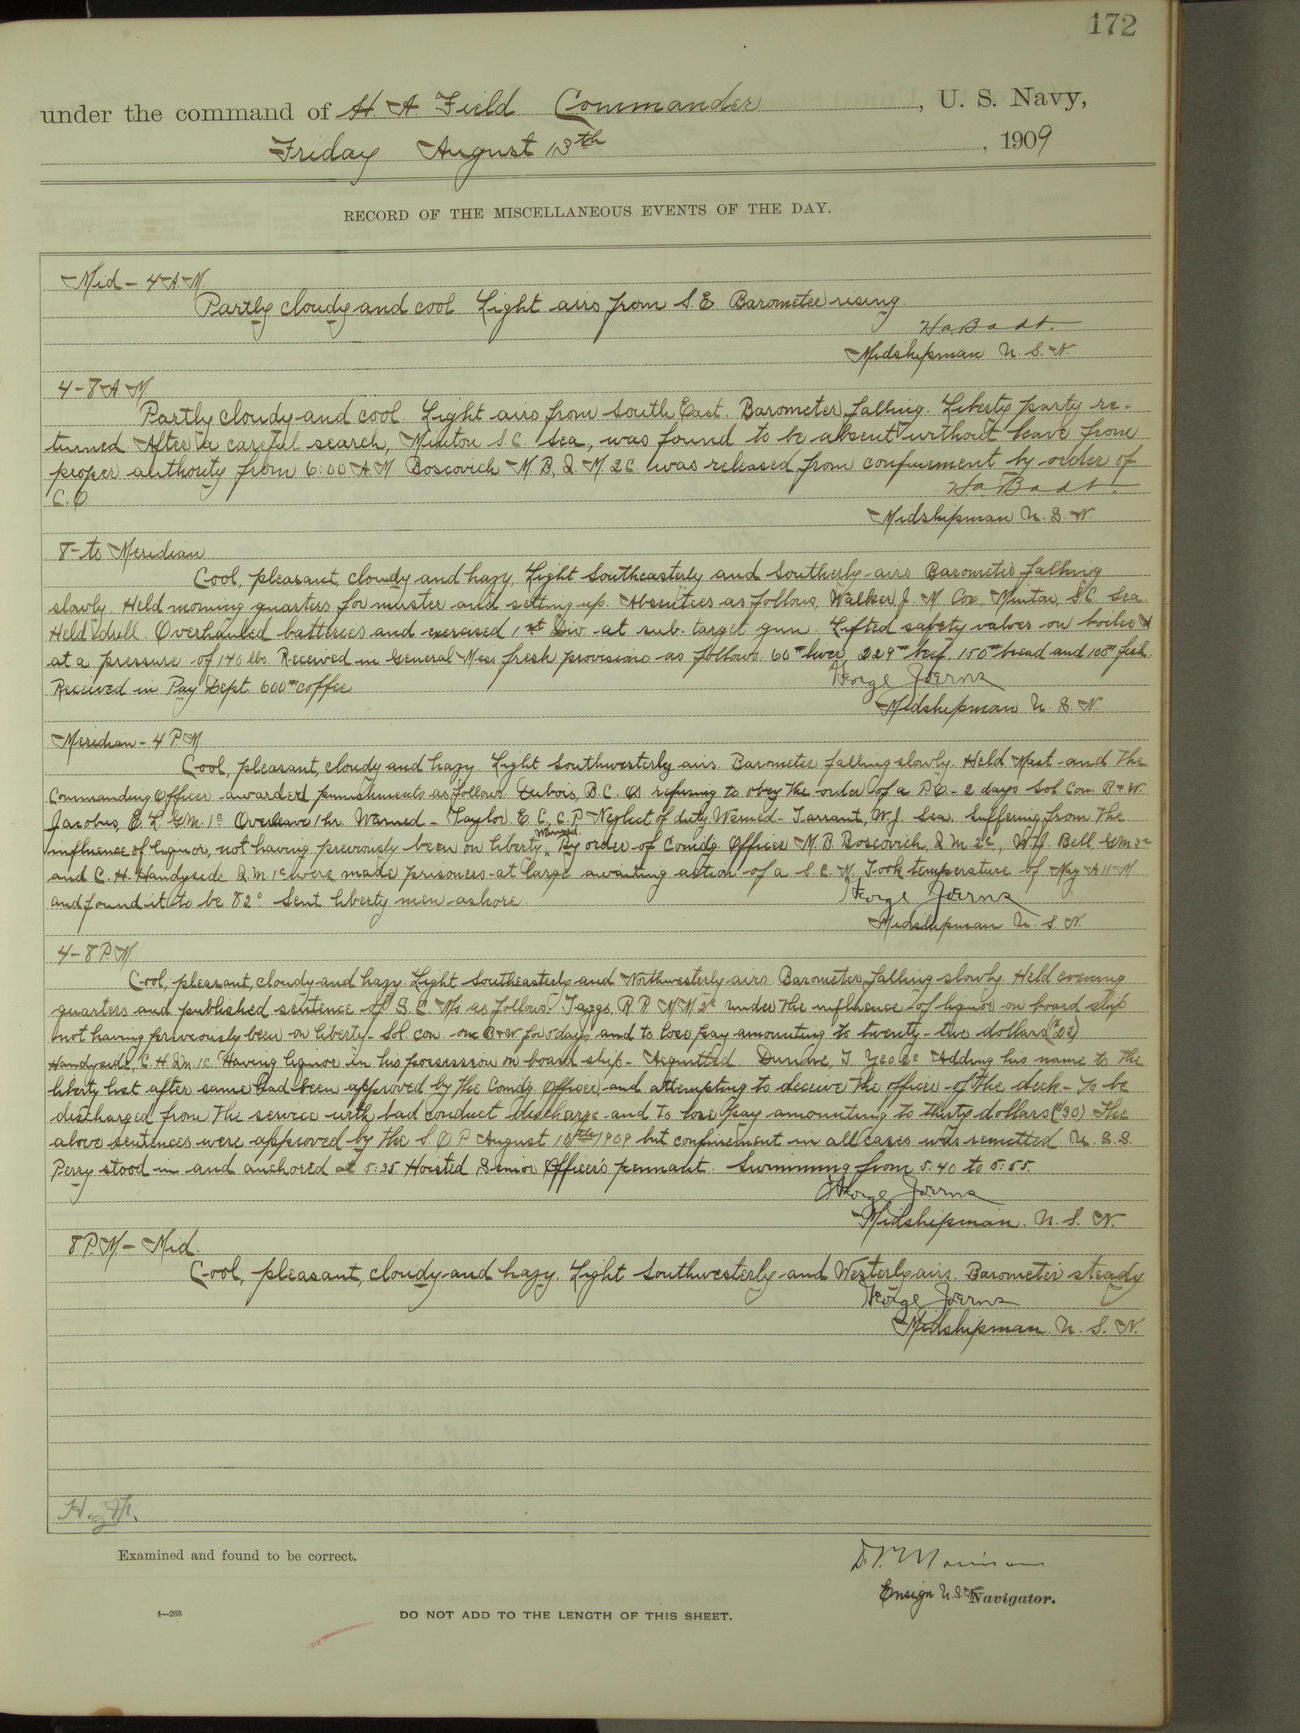 172
under the command of H. A. Field Commander , U. S. Navy,
Friday August 13th , 1909
RECORD OF THE MISCELLANEOUS EVENTS OF THE DAY.
Mid - 4 A M
Partly cloudy and cool Light airs from S. E Barometer rising.
Ha Badt.
Midshipman U. S. N.
4 - 8 A M
Partly cloudy and cool Light airs from South East. Barometer falling. Liberty party re-
turned After a careful search, Minton S C Sea, was found to be absent without leave from
proper authority from 6:00 A M Boscovich M. B, Q. M. 2C was released from confinement by order of
C. O
Ha Badt.
Midshipman U. S. N
8 - to Meridian
Cool, pleasant, cloudy and hazy. Light Southeasterly and Southerly airs Barometer falling
slowly. Held morning quarters for muster and setting up. Absentees as follows, Walker J. M Cox. Minton, S. C. Sea.
Held drill. Overhauled batteries and exercised 1st Div at sub. target gun Lifted safety valves on boiler
at a pressure of 140 lbs. Received in General Mess fresh provisions as follows. 60# liver, 229# beef. 150# bread and 100# fish
Received in Pay Dept. 600# coffee
George Joerns
Midshipman U. S. N
Meridian - 4 P M
Cool, pleasant, cloudy and hazy Light Southwesterly airs. Barometer falling slowly. Held Mast and the
Commanding Officer awarded punishments as follows. Dubois, B. C. OS refusing to obey the order of a P.O. - 2 days Sol Con B & W.
Jacobus, E. L GM. 1c Overleave 1 hr. Warned - Taylor E C, C. P Neglect of duty Warned - Tarrant, W. J. Sea. Suffering from the
influence of liquor, not having previously been on liberty, Warned. By order of Comdg. Officer M. B. Boscovich, Q M 2c, W J. Bell GM
and C. H. Handyside Q. M 1c were made prisoners at large awaiting action of a S. C. M. Took temperature of Mag A 11-M
and found it to be 82° Sent liberty men ashore
George Joerns
Midshipman U. S. N.
4 - 8 P M
Cool, pleasant, cloudy and hazy. Light Southeasterly and Northwesterly airs Barometer falling slowly Held evening
quarters and published sentence of S. C. Ms as follows. Taggs, R R MM 2c Under the influence of liquor on board ship
not having previously been on liberty - Sol. con. on B & W for days and to lose pay amounting to twenty - two dollars ($22)
Handyside, C H QM. 1c Having liquor in his possession on board ship - Acquitted Adding his name to the
liberty list after same had been approved by the Comdg. Officer, and attempting to deceive the officer of the deck - To be
discharged from the service with bad conduct discharge and to lose pay amounting to thirty dollars ($30) The
above sentences were approved by the S. O. P August 1909 but confinement in all cases was remitted U. S. S.
Perry stood in and anchored at 5.35 Hoisted Senior Officer's pennant. Swimming from 5:40 to 5:55.
George Joerns
Midshipman. U. S. N.
8 P. M - Mid.
Cool, pleasant, cloudy and hazy. Light Southwesterly and Westerly airs. Barometer steady
George Joerns
Midshipman. U. S. N.
Examined and found to be correct.
Ensign U. S. N Navigator.
4—265
DO NOT ADD TO THE LENGTH OF THIS SHEET.